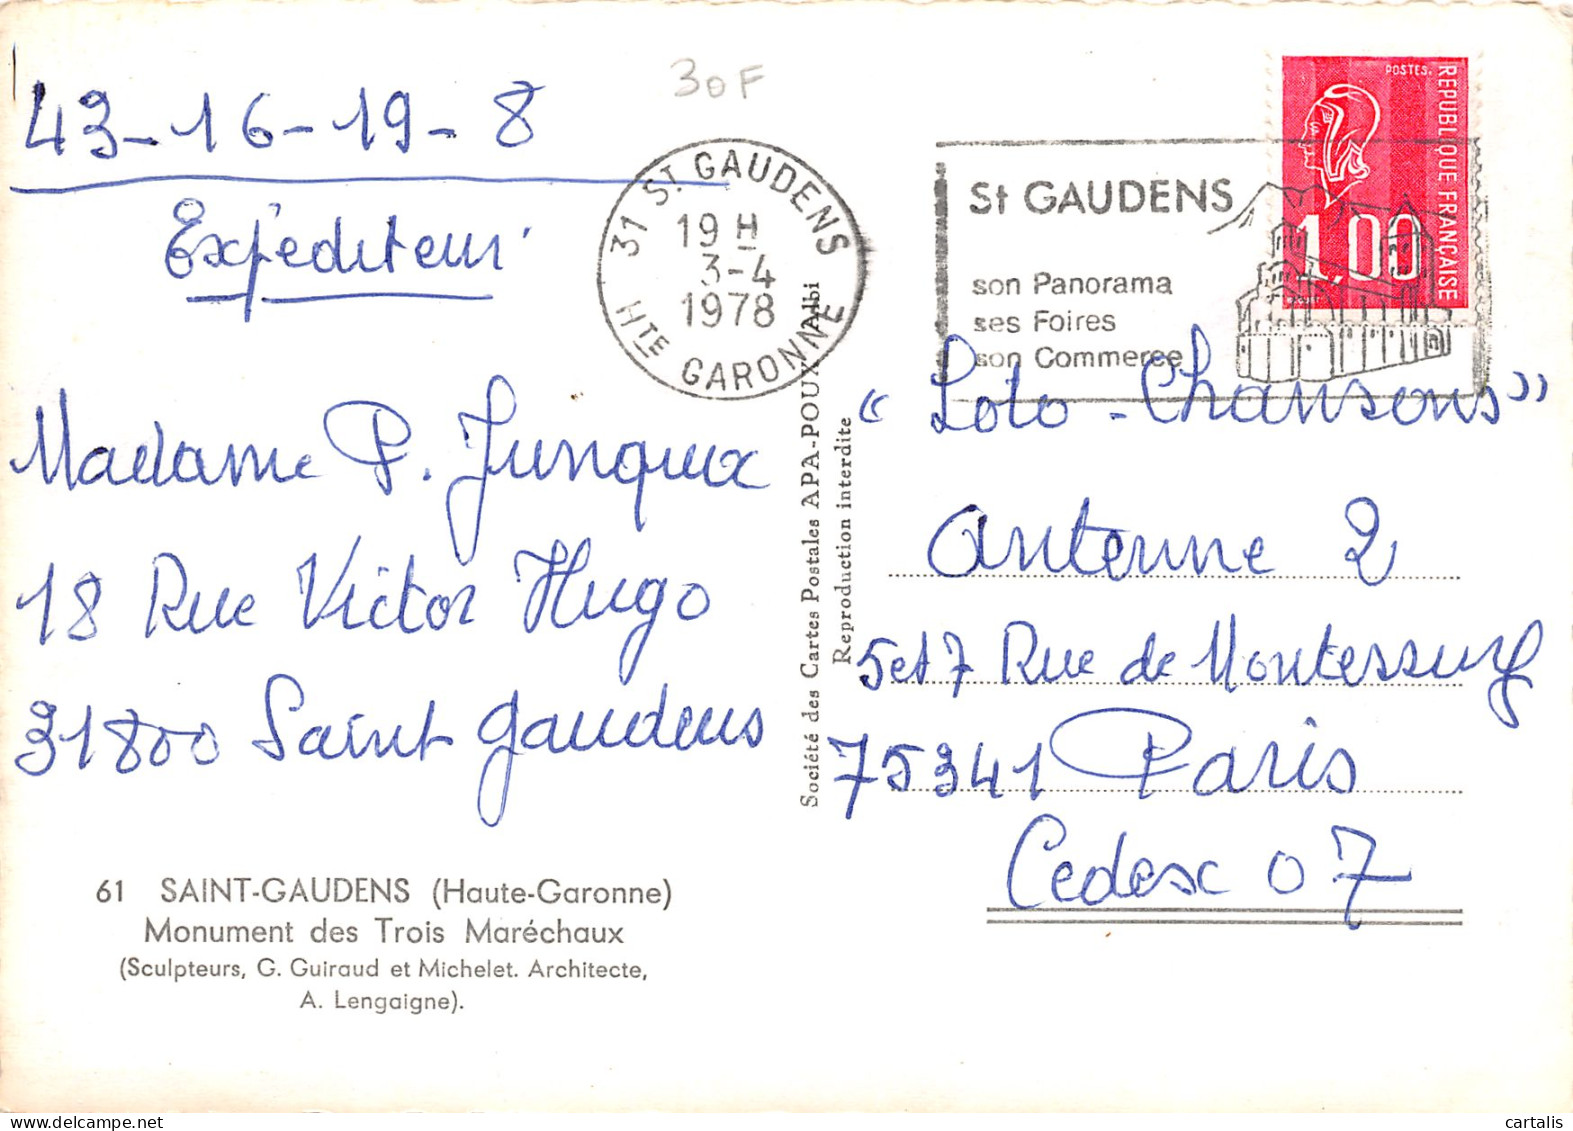 43-16-19-8
Expéditeur
Madame P. Junqua
18 Rue Victor Hugo
31800 Saint Gaudens
61 SAINT-GAUDENS (Haute-Garonne)
Monument des Trois Maréchaux
(Sculpteurs, G. Guiraud et Michelet. Architecte,
A. Lengaigne).
30F
31 ST GAUDENS
19 H
3-4
1978
HTE GARONNE
Société des Cartes Postales APA-POUX Albi
Reproduction interdite
St GAUDENS
son Panorama
ses Foires
son Commerce
POSTES.
REPUBLIQUE FRANÇAISE
1,00
"Loto-Chansons"
Antenne 2
5et7 Rue de Montessuy
75341 Paris
Cedex 07
cartalis
www.delcampe.net